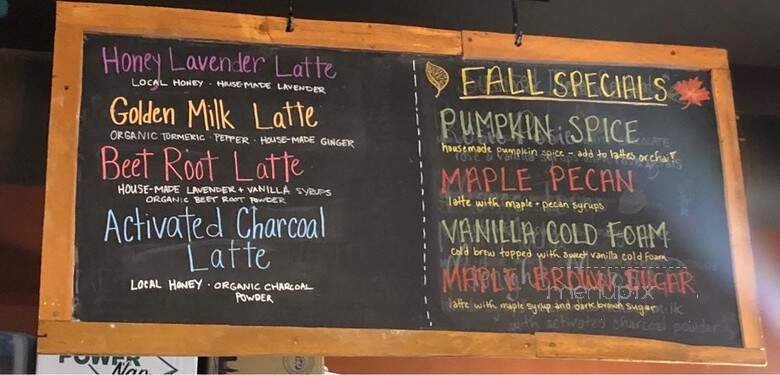 Honey Lavender Latte
LOCAL HONEY · HOUSE-MADE LAVENDER
Golden Milk Latte
ORGANIC TURMERIC · PEPPER · HOUSE-MADE GINGER
Beet Root Latte
HOUSE-MADE LAVENDER + VANILLA SYRUPS
ORGANIC BEET ROOT POWDER
Activated Charcoal
Latte
LOCAL HONEY · ORGANIC CHARCOAL
POWDER
FALL SPECIALS
PUMPKIN SPICE
housemade pumpkin spice - add to lattes or chai
MAPLE PECAN
latte with maple + pecan syrups
VANILLA COLD FOAM
cold brew topped with sweet vanilla cold foam
MAPLE BROWN SUGAR
latte with maple syrup and dark brown sugar
menupix
milk
with activated charcoal powder
POWER
Nap